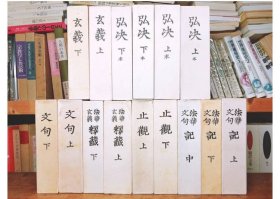 玄義 下
玄義 上
弘決 下末
弘決 下本
弘決 上末
弘決 上本
文句 下
文句 上
法華玄義釋籤 下
法華玄義釋籤 上
止觀 上
止觀 下
法華文句記 中
法華文句記 下
法華文句記 上